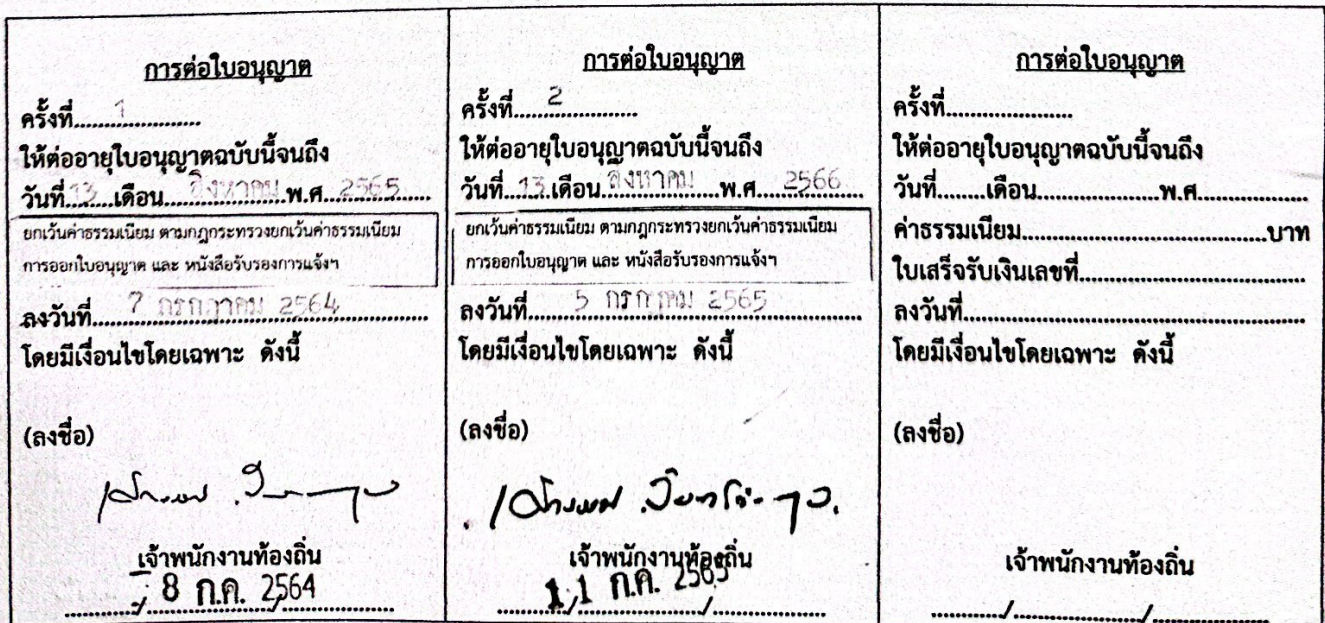 การต่อใบอนุญาต
ครั้งที่.....1.....
ให้ต่ออายุใบอนุญาตฉบับนี้จนถึง
วันที่..13..เดือน...สิงหาคม...พ.ศ...2565...
ยกเว้นค่าธรรมเนียม ตามกฎกระทรวงยกเว้นค่าธรรมเนียม
การออกใบอนุญาต และ หนังสือรับรองการแจ้งฯ
ลงวันที่.....7 กรกฎาคม 2564.....
โดยมีเงื่อนไขโดยเฉพาะ ดังนี้
(ลงชื่อ)
เจ้าพนักงานท้องถิ่น
8 ก.ค. 2564
การต่อใบอนุญาต
ครั้งที่.....2.....
ให้ต่ออายุใบอนุญาตฉบับนี้จนถึง
วันที่..13..เดือน...สิงหาคม...พ.ศ...2566
ยกเว้นค่าธรรมเนียม ตามกฎกระทรวงยกเว้นค่าธรรมเนียม
การออกใบอนุญาต และ หนังสือรับรองการแจ้งฯ
ลงวันที่.....5 กรกฎาคม 2565.....
โดยมีเงื่อนไขโดยเฉพาะ ดังนี้
(ลงชื่อ)
เจ้าพนักงานท้องถิ่น
11 ก.ค. 2565
การต่อใบอนุญาต
ครั้งที่....................
ให้ต่ออายุใบอนุญาตฉบับนี้จนถึง
วันที่........เดือน...................พ.ศ...................
ค่าธรรมเนียม.........................................บาท
ใบเสร็จรับเงินเลขที่......................................
ลงวันที่..........................................................
โดยมีเงื่อนไขโดยเฉพาะ ดังนี้
(ลงชื่อ)
เจ้าพนักงานท้องถิ่น
............./...................../...................